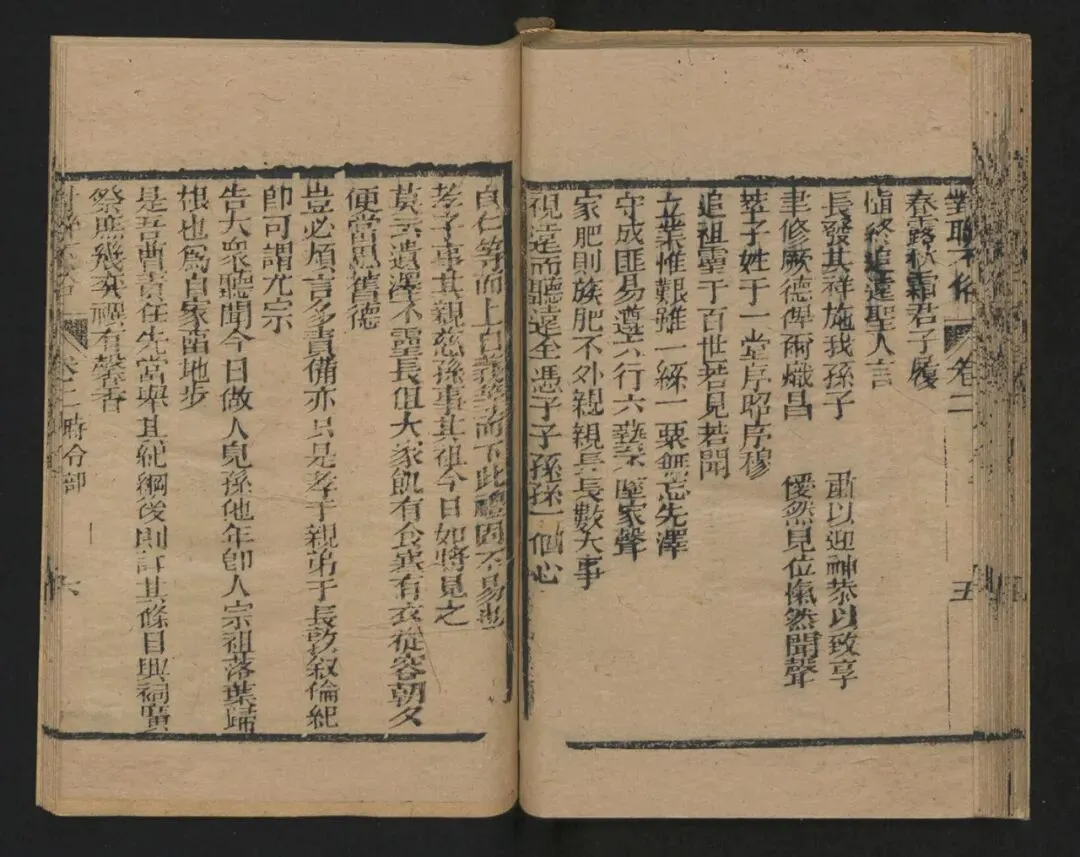 對聯不俗 卷二 五
春露秋霜君子履
愼終追遠聖人言
長發其祥施我孫子 肅以迎神恭以致享
聿修厥德俾爾熾昌 僾然見位愾然聞聲
萃子姓于一堂序昭序穆
追祖靈于百世若見若聞
立業惟艱雖一絲一粟無忘先澤
守成匪易遵六行六藝 家聲
家肥則族肥不外親親長長數大事
視遠而聽遠全憑子子孫孫一個心
自仁 而上自義 而下此禮固不易也
孝子事其親慈孫事其祖今日如將見之
莫云遺澤不靈長但大家飢有食寒有衣從容朝夕
便當思舊德
豈必煩言多責備亦只是孝于親弟于長敦敘倫紀
卽可謂亢宗
告大衆聽聞今日做人兒孫他年卽人宗祖落葉歸
根也爲自家留地步
是吾曹責任先當舉其紀綱後則詳其條目興祠廣
祭庶幾祭禩有馨香
卷二時令部 六